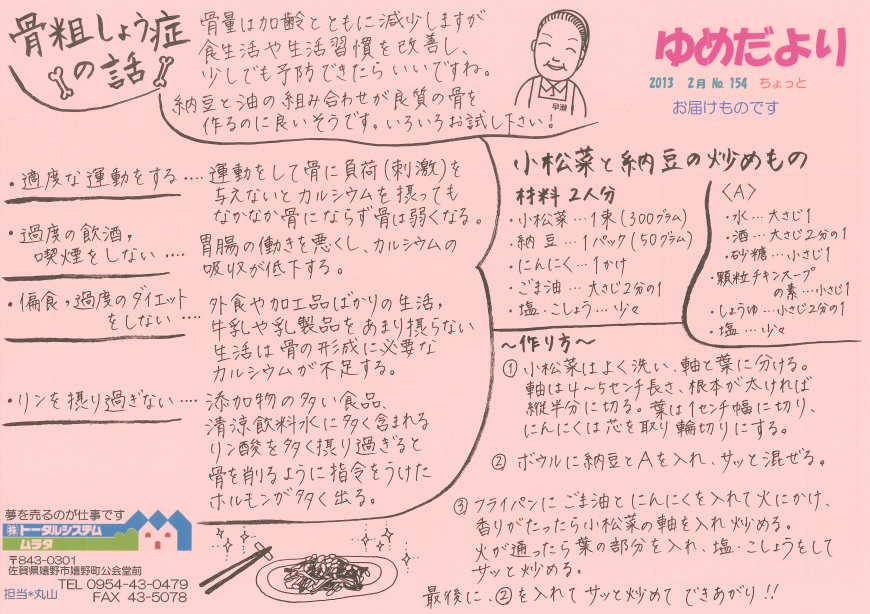 骨粗しょう症
の話
骨量は加齢とともに減少しますが
食生活や生活習慣を改善し、
少しでも予防できたらいいですね。
納豆と油の組み合わせが良質の骨を
作るのに良いそうです。いろいろお試し下さい!
早瀬
ゆめだより
2013 2月 No. 154 ちょっと
お届けものです
・適度な運動をする‥‥
運動をして骨に負荷(刺激)を
与えないとカルシウムを摂っても
なかなか骨にならず骨は弱くなる。
・過度の飲酒,
喫煙をしない‥‥
胃腸の働きを悪くし、カルシウムの
吸収が低下する。
・偏食,過度のダイエット
をしない‥‥
外食や加工品ばかりの生活,
牛乳や乳製品をあまり摂らない
生活は骨の形成に必要な
カルシウムが不足する。
・リンを摂り過ぎない‥‥
添加物の多い食品、
清涼飲料水に多く含まれる
リン酸を多く摂り過ぎると
骨を削るように指令をうけた
ホルモンが多く出る。
小松菜と納豆の炒めもの
材料 2人分
・小松菜…1束(300グラム)
・納豆…1パック(50グラム)
・にんにく…1かけ
・ごま油…大さじ2分の1
・塩・こしょう…少々
〈A〉
・水…大さじ1
・酒…大さじ2分の1
・砂糖…小さじ1
・顆粒チキンスープ
の素…小さじ1
・しょうゆ…小さじ2分の1
・塩…少々
〜作り方〜
① 小松菜はよく洗い、軸と葉に分ける。
軸は4〜5センチ長さ、根本が太ければ
縦半分に切る。葉は1センチ幅に切り、
にんにくは芯を取り輪切りにする。
② ボウルに納豆とAを入れ、サッと混ぜる。
③ フライパンにごま油とにんにくを入れて火にかけ、
香りがたったら小松菜の軸を入れ炒める。
火が通ったら葉の部分を入れ、塩・こしょうをして
サッと炒める。
最後に、②を入れてサッと炒めてできあがり!!
夢を売るのが仕事です
㈱トータルシステム
ムラタ
〒843-0301
佐賀県嬉野市嬉野町公会堂前
TEL 0954-43-0479
担当*丸山 FAX 43-5078